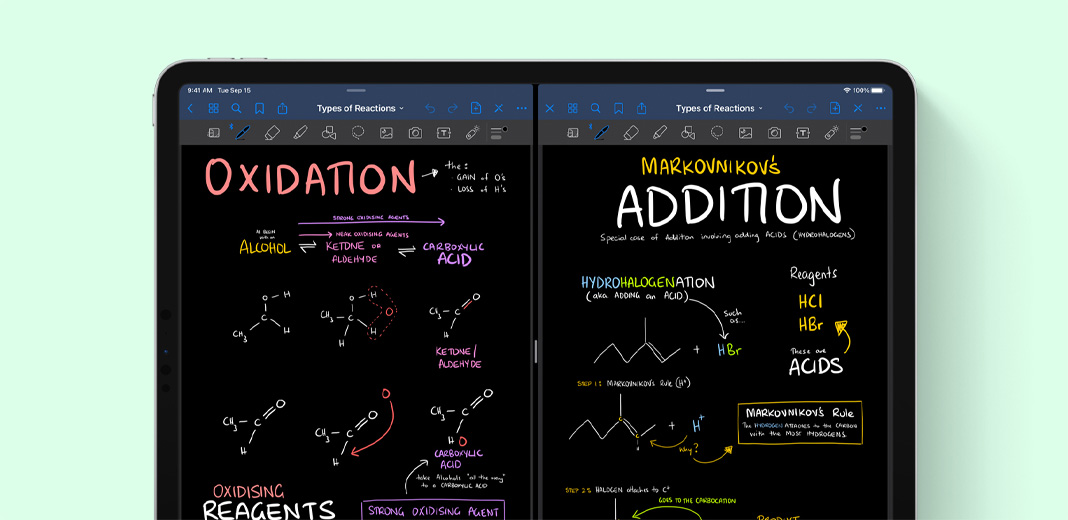 9:41 AM Tue Sep 15
100%
Types of Reactions
Types of Reactions
OXIDATION
the:
· GAIN of O's
· LOSS of H's
STRONG OXIDISING AGENTS
WEAK OXIDISING AGENTS
ALCOHOL
KETONE OR
ALDEHYDE
CARBOXYLIC
ACID
O — H
CH₃
C
H
O — H
CH₃ — C
H
H
O
O
CH₃ — C
H
KETONE/
ALDEHYDE
O
CH₃ — C
H
O
O
CH₃ — C
H
O
CH₃ — C
H O
CARBOXYLIC
ACID
take Alcohols "all the way"
to a CARBOXYLIC ACID
OXIDISING
REAGENTS
STRONG OXIDISING AGENT
MARKOVNIKOV'S
ADDITION
Special case of Additon involving adding ACIDS (HYDROHALOGENS)
HYDROHALOGENATION
(aka ADDING an ACID)
such
as...
+ HBr
Reagents
HCl
HBr
These are
ACIDS
STEP 1: MARKOVNIKOV'S Rule (H⁺)
C
C
+ H⁺
Why?
MARKOVNIKOV'S Rule
The HYDROGEN ATTACHES to the CARBON
with the MOST HYDROGENS
STEP 2: HALOGEN attaches to C⁺
GOES TO THE CARBOCATION
PRODUCT